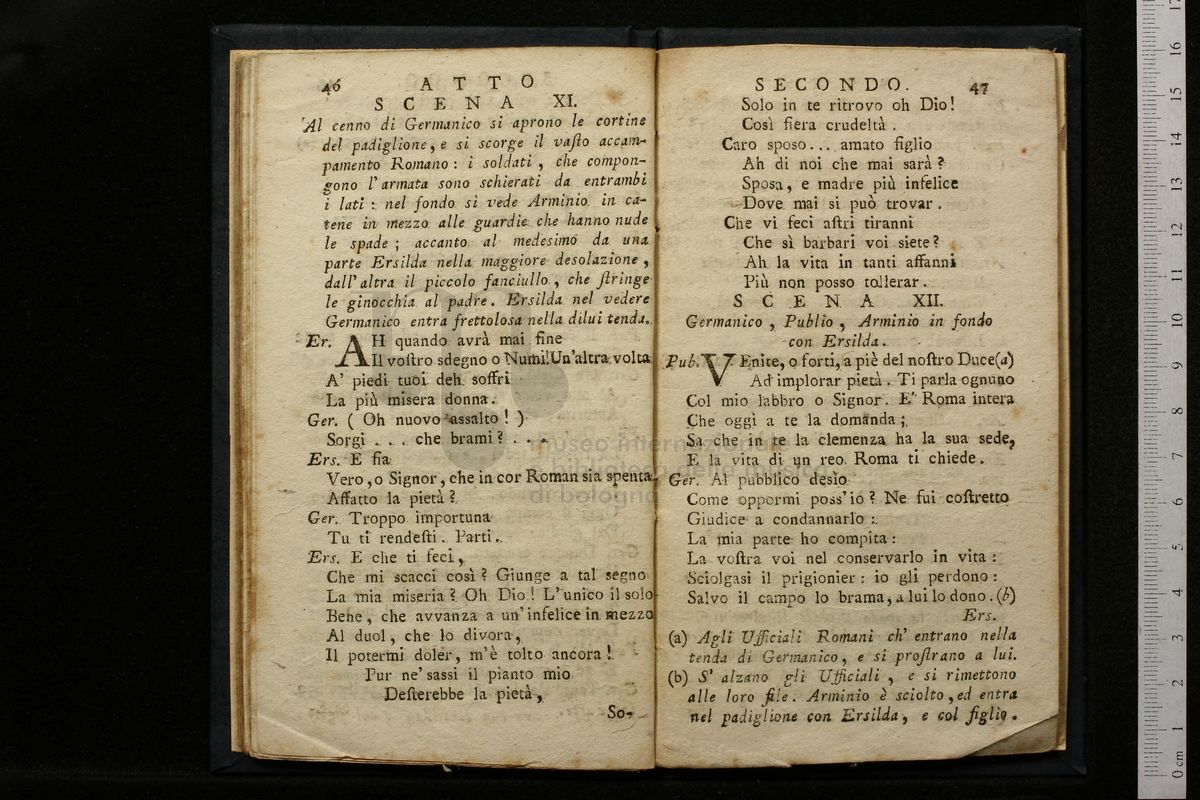 46 ATTO
SCENA XI.
Al cenno di Germanico si aprono le cortine
del padiglione, e si scorge il vaſto accam-
pamento Romano: i soldati, che compon-
gono l'armata sono schierati da entrambi
i lati: nel fondo si vede Arminio in ca-
tene in mezzo alle guardie che hanno nude
le spade; accanto al medesimo da una
parte Ersilda nella maggiore desolazione,
dall'altra il piccolo fanciullo, che ſtringe
le ginocchia al padre. Ersilda nel vedere
Germanico entra frettolosa nella dilui tenda.
Er. AH quando avrà mai fine
Il voſtro sdegno o Numi! Un'altra volta
A' piedi tuoi deh soffri
La più misera donna.
Ger. (Oh nuovo assalto!)
Sorgi ... che brami? ...
Ers. E fia
Vero, o Signor, che in cor Roman sia spenta
Affatto la pietà?
Ger. Troppo importuna
Tu ti rendeſti. Parti.
Ers. E che ti feci,
Che mi scacci così? Giunge a tal segno
La mia miseria? Oh Dio! L'unico il solo
Bene, che avvanza a un'infelice in mezzo
Al duol, che lo divora,
Il potermi doler, m'è tolto ancora!
Pur ne' sassi il pianto mio
Deſterebbe la pietà,
So-
SECONDO. 47
Solo in te ritrovo oh Dio!
Così fiera crudeltà.
Caro sposo... amato figlio
Ah di noi che mai sarà?
Sposa, e madre più infelice
Dove mai si può trovar.
Che vi feci aſtri tiranni
Che sì barbari voi siete?
Ah la vita in tanti affanni
Più non posso tollerar.
SCENA XII.
Germanico, Publio, Arminio in fondo
con Ersilda.
Pub. VEnite, o forti, a piè del noſtro Duce(a)
Ad implorar pietà. Ti parla ognuno
Col mio labbro o Signor. E' Roma intera
Che oggi a te la domanda;
Sa che in te la clemenza ha la sua sede,
E la vita di un reo Roma ti chiede.
Ger. Al pubblico desìo
Come oppormi poss'io? Ne fui coſtretto
Giudice a condannarlo:
La mia parte ho compita:
La voſtra voi nel conservarlo in vita:
Sciolgasi il prigionier: io gli perdono:
Salvo il campo lo brama, a lui lo dono.(b)
Ers.
(a) Agli Ufficiali Romani ch' entrano nella
tenda di Germanico, e si proſtrano a lui.
(b) S' alzano gli Ufficiali, e si rimettono
alle loro file. Arminio è sciolto, ed entra
nel padiglione con Ersilda, e col figlio.
museo internazionale
e biblioteca della musica
di bologna
0 cm 1 2 3 4 5 6 7 8 9 10 11 12 13 14 15 16 17